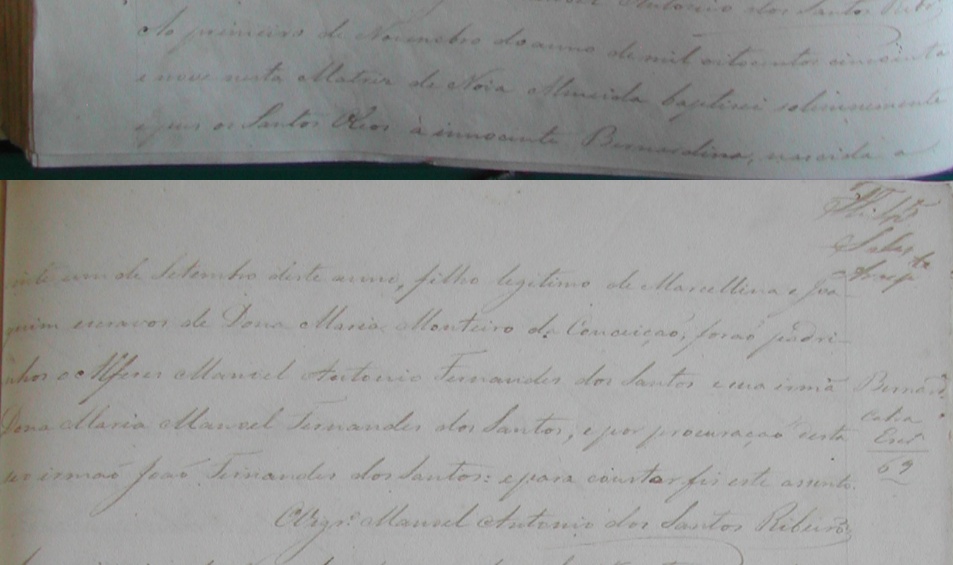 Manoel Antonio dos Santos Ribr.
Ao primeiro de Novembro do anno de mil oitocentos cincoenta
e nove nesta Matriz de Noia Almeida baptisei solemnemente
e puz os Santos Oleos à innocente Bernardina, nascida a
vinte um de Setembro deste anno, filho legitimo de Marcellina e Joa-
quim escravos de Dona Maria Monteiro da Conceição, forão padri-
nhos o Alferes Manoel Antonio Fernandes dos Santos e sua irmã
Dona Maria Manoel Fernandes dos Santos, e por procuração desta
seo irmão João Fernandes dos Santos: e para constar fis este assento.
O Vigr.º Manoel Antonio dos Santos Ribeiro,
Bernard.
cabra
Escr.
69